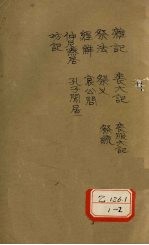 雜記
喪大記
喪服大記
祭法
祭義
祭統
經解
哀公問
仲尼燕居
孔子閒居
坊記
Z 126.1
1-2